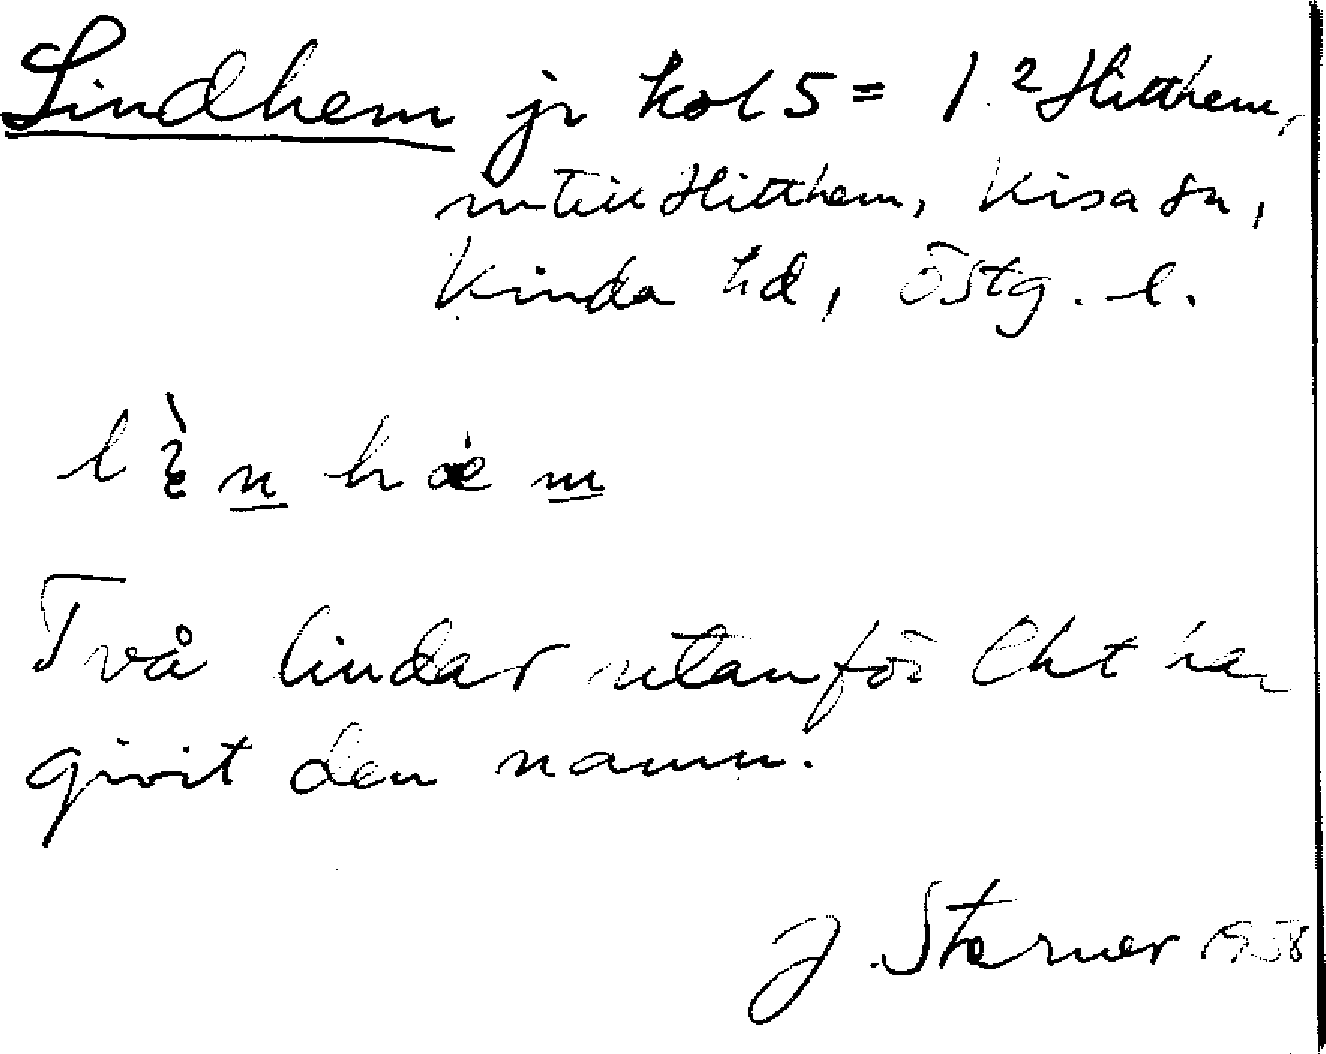 Lindhem jr kol 5 = 1.2 Hitthem,
Hitthem, Kisa sn,
Kinda hd, Östg. l.
Två lindar utanför har
givit den namn.
J. Sterner 1958